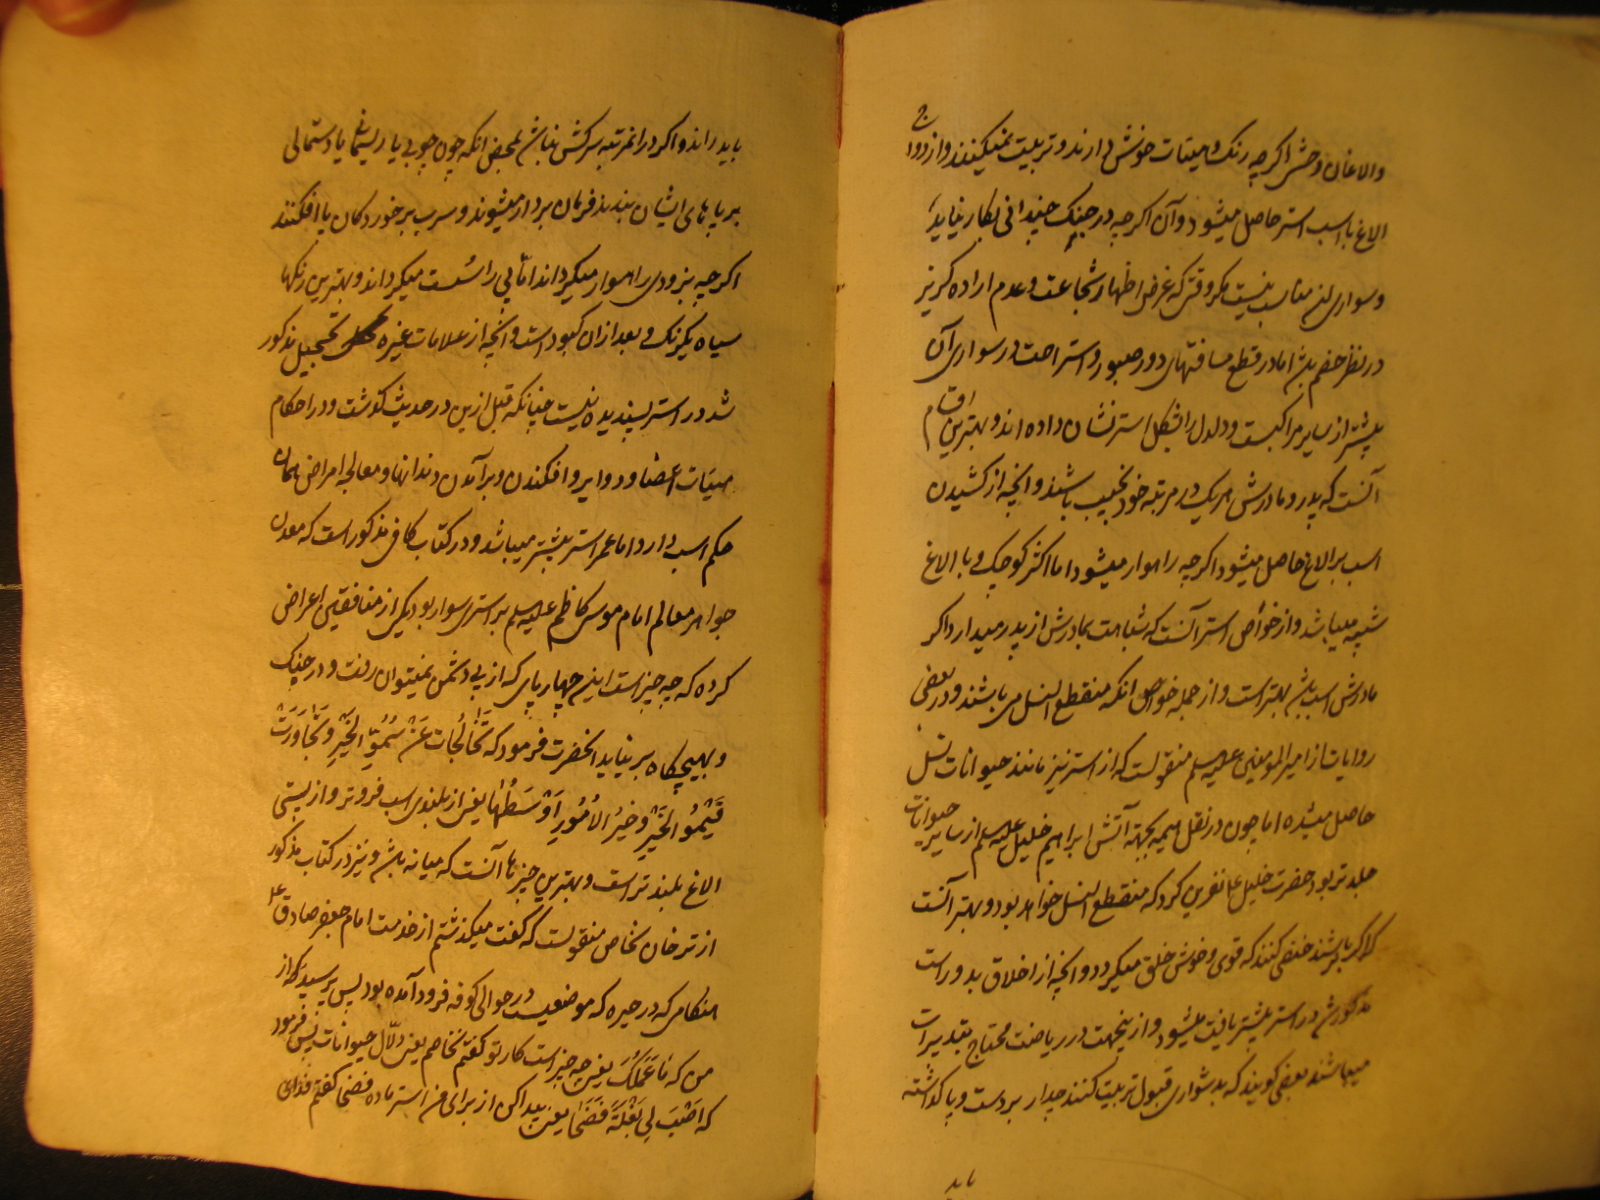 والاغان وحشی اکرچه رنک و هیئات خوش دارند و تربیت نمیکنند و از دواج
الاغ با اسب استر حاصل میشود و آن اکرچه در جنک چندانی بکار نیاید
و سواری این مناسب نیست مکر وقتی که غرض اظهار شجاعت و عدم اراده کریز
در نظر خصم باشد اما در قطع مسافتهای دور صبور و استراحت در سواری آن
بیشتر از سایر مراکبست و دلدل را بشکل استر نشان داده اند و بهترین اقسام
آنست که پدر و مادرش هر یک در مرتبه خود نجیب باشند و انچه از کشیدن
اسب بر الاغ حاصل میشود اکرچه راهوار میشود اما اکثر کوچک و با الاغ
شبیه میباشد و از خواص استر آنست که شباهت بمادرش از پدر میدارد اکر
مادرش اسب باشد بهتر است و از جمله خواص انکه منقطع النسل می باشند و در بعضی
روایات از امیرالمومنین علیه السلم منقولست که از استر نیز مانند حیوانات نسل
حاصل میشده اما چون در نقل هیمه بجهة آتش ابراهیم خلیل علیه السلم از سایر حیوانات
جلدتر بود حضرت خلیل ع نفرین کرد که منقطع النسل خواهد بود و بهتر آنست
که اکر باشند خصی کنند که قوی و خوش خلق میکردد و انچه از اخلاق بد و راست
مذکور شد در استر بیشتر یافت میشود و ازینجهت در ریاضت محتاج بتدبیرات
میباشند بعضی کویند که بدشواری قبول تربیت کنند چدار بر دست و پا کذاشته
باید
باید راند و اکر در انمرتبه سرکش نباشد بمحض انکه چون چوبی یا ریسمانی یا دستمالی
بر پاهای ایشان بندند فرمان بردار میشوند و سرب بر خوردکان پا افکنند
اکرچه بزودی راهوار میکرداند اما پی را سست میکرداند و بهترین رنکها
سیاه یکرنک و بعد ازان کبود است و انچه از علامات غره تحجیل مذکور
شد در استر پسندیده نیست چنانکه قبل ازین در حدیث کذشت و در احکام
هیئات اعضا و دوایر و افکندن و برآمدن دندانها و معالجه امراض همان
حکم اسب دارد اما عمر استر بیشتر میباشد و در کتاب کافی مذکور است که معدن
جواهر معالم امام موسی کاظم علیه السلم بر استری سوار بود یکی از منافقین اعراض
کرده که چه چیز است اینچهارپای که از پی دشمن نمیتوان رفت و در جنک
و بهیچکاه بر نیاید انحضرت فرمود که تَخَالَجات عَنْ سُمُوِّ الخَیْرِ وَ تَجَاوَزَتْ
قَیْمُو الخَیْرِ وَ خَیْرُ الاُمُورِ اَوْسَطُهَا یعنی از بلندی اسب فروتر و از پستی
الاغ بلندتر است و بهترین چیزها آنست که میانه باشد و نیز در کتاب مذکور
از ترخان نخاص منقولست که کفت میکذشتم از خدمت امام جعفر صادق ع
هنکامی که در حیره که موضعیست در حوالی کوفه فرود آمده بود پس پرسید که از
من که مَا عَمَلُکَ یعنی چه چیز است کار تو کفتم نخاصم یعنی دلّال حیوانات پس فرمود
که اَصْبْ لِی بَغْلَةً فَضْحَا یعنی پیدا کن از برای من استر ماده فضحا کفتم فدای